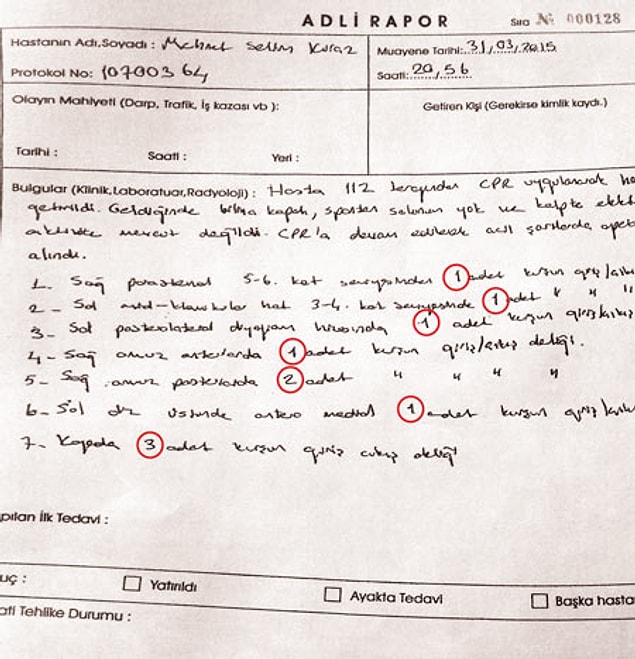 ADLİ RAPOR
Sıra № 000128
Hastanın Adı,Soyadı : Mehmet Selim Kiraz
Muayene Tarihi: 31/03/2015
Protokol No: 10700364
Saati: 20/56
Olayın Mahiyeti (Darp, Trafik, İş kazası vb ):
Getiren Kişi (Gerekirse kimlik kaydı.)
Tarihi : Saati : Yeri :
Bulgular (Klinik,Laboratuar,Radyoloji) : Hasta 112 tarafından CPR uygulanarak
getirildi. Geldiğinde bilinç kapalı, spontan solunum yok ve kalpte
aktivite mevcut değildi. CPR'a devam edilerek acil şartlarda
alındı.
1. Sağ parasternal 5-6. kot seviyesinden 1 adet kurşun giriş/
2- Sol mid-klavikular hat 3-4. kot seviyesinde 1 adet " " "
3- Sol posterolateral diyafram hizasında 1 adet kurşun giriş/
4- Sağ omuz 1 adet kurşun giriş/çıkış deliği.
5- Sağ omuz 2 adet " " "
6- Sol diz üstünde antero medial 1 adet kurşun giriş/
7- Kafada 3 adet kurşun giriş çıkış deliği
pılan İlk Tedavi :
uç : Yatırıldı Ayakta Tedavi Başka hasta
ati Tehlike Durumu :